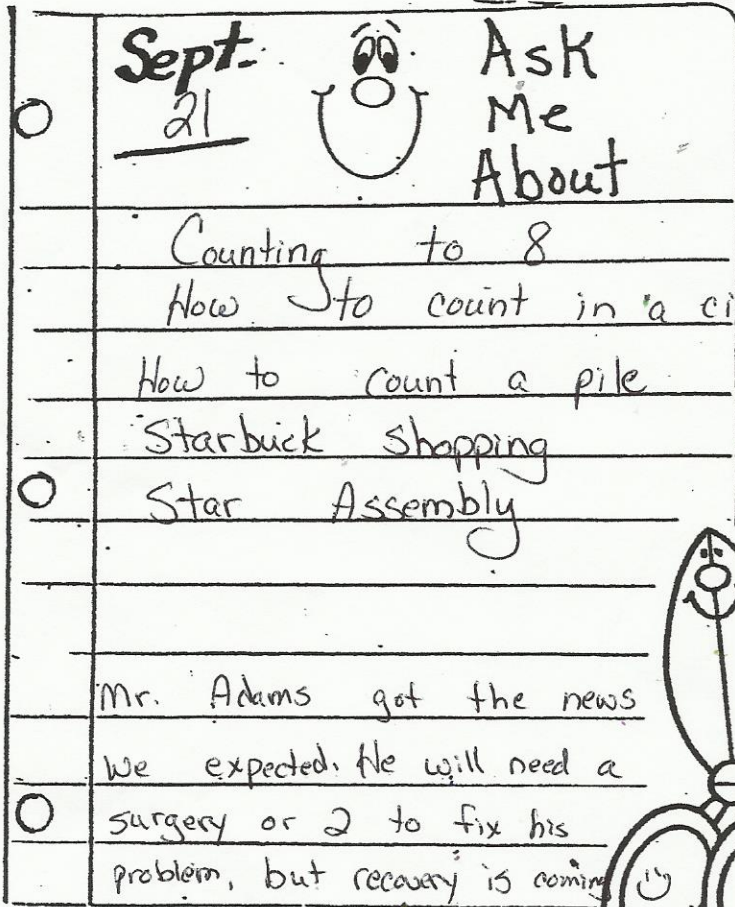 Sept.
21
Ask
Me
About
Counting to 8
How to count in a ci
How to count a pile
Starbuck shopping
Star Assembly
Mr. Adams got the news
we expected. He will need a
surgery or 2 to fix his
problem, but recovery is coming